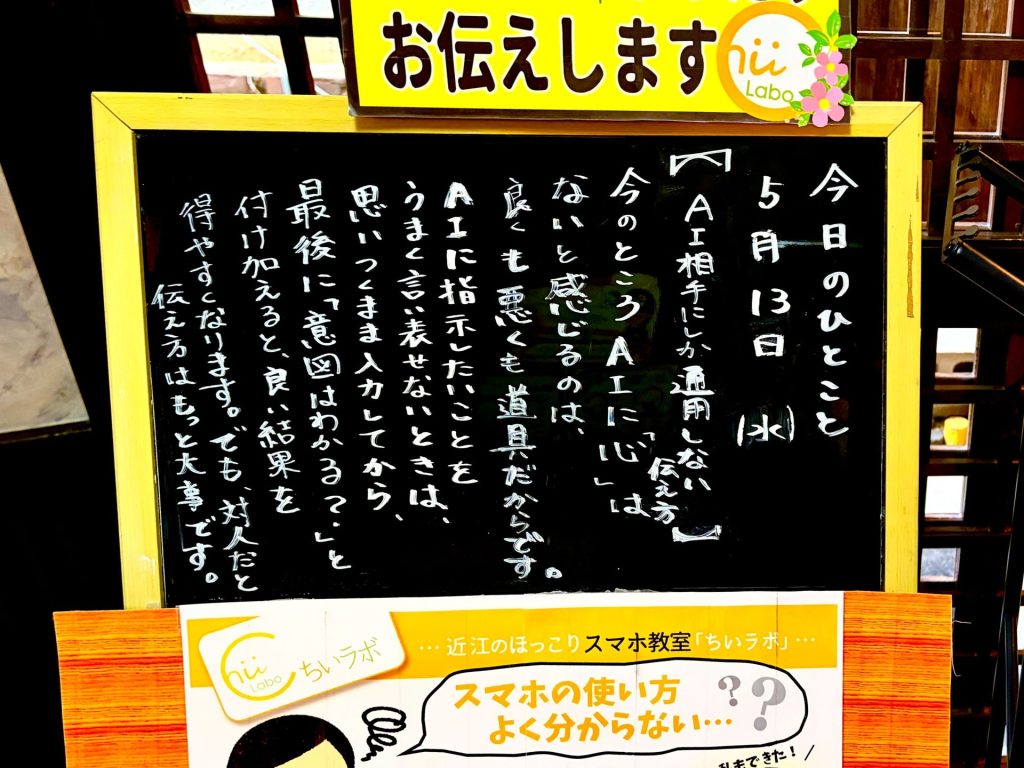 お伝えします
Chii
Labo
今日のひとこと
5月13日(水)
【AI相手にしか通用しない
伝え方】
今のところAIに「心」は
ないと感じるのは、
良くも悪くも道具だからです。
AIに指示したいことを
うまく言い表せないときは、
思いつくまま入力してから、
最後に「意図はわかる？」と
付け加えると、良い結果を
得やすくなります。でも、対人だと
伝え方はもっと大事です。
Chii
Labo
ちいラボ
…近江のほっこりスマホ教室「ちいラボ」…
スマホの使い方
よく分からない…??